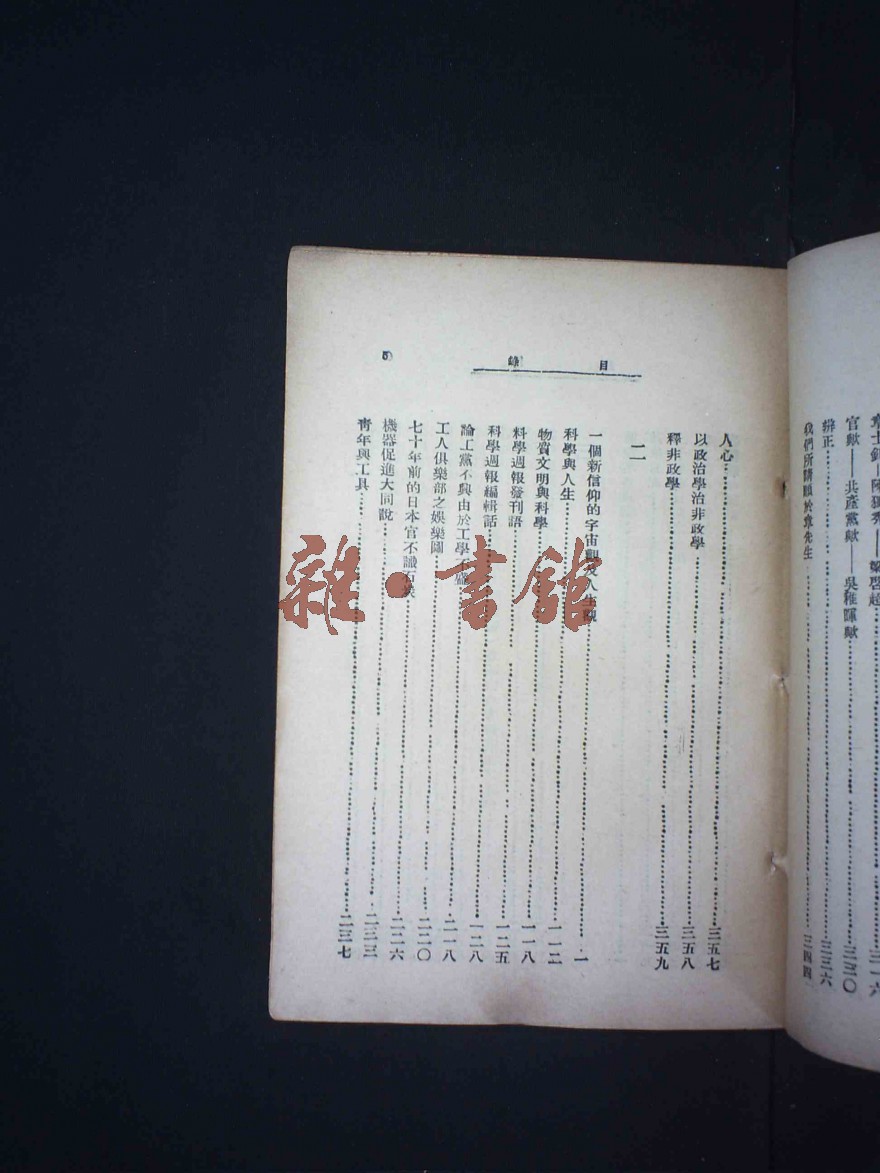 章士釗—陳獨秀—梁啓超……三一六
官歟——共產黨歟——吳稚暉歟……三三〇
辨正……三三六
我們所請願於章先生……三四四
目錄 5
人心……三五七
以政治學治非政學……三五八
釋非政學……三五九
二
一個新信仰的宇宙觀及人生觀……一
科學與人生……一一二
物質文明與科學……一一八
科學週報發刊語……一二五
科學週報編輯話……一二八
論工黨不興由於工學不盛……二一八
工人俱樂部之娛樂園……二二〇
七十年前的日本官不識石炭……二二六
機器促進大同說……二三三
靑年與工具……二三七
雜·書館